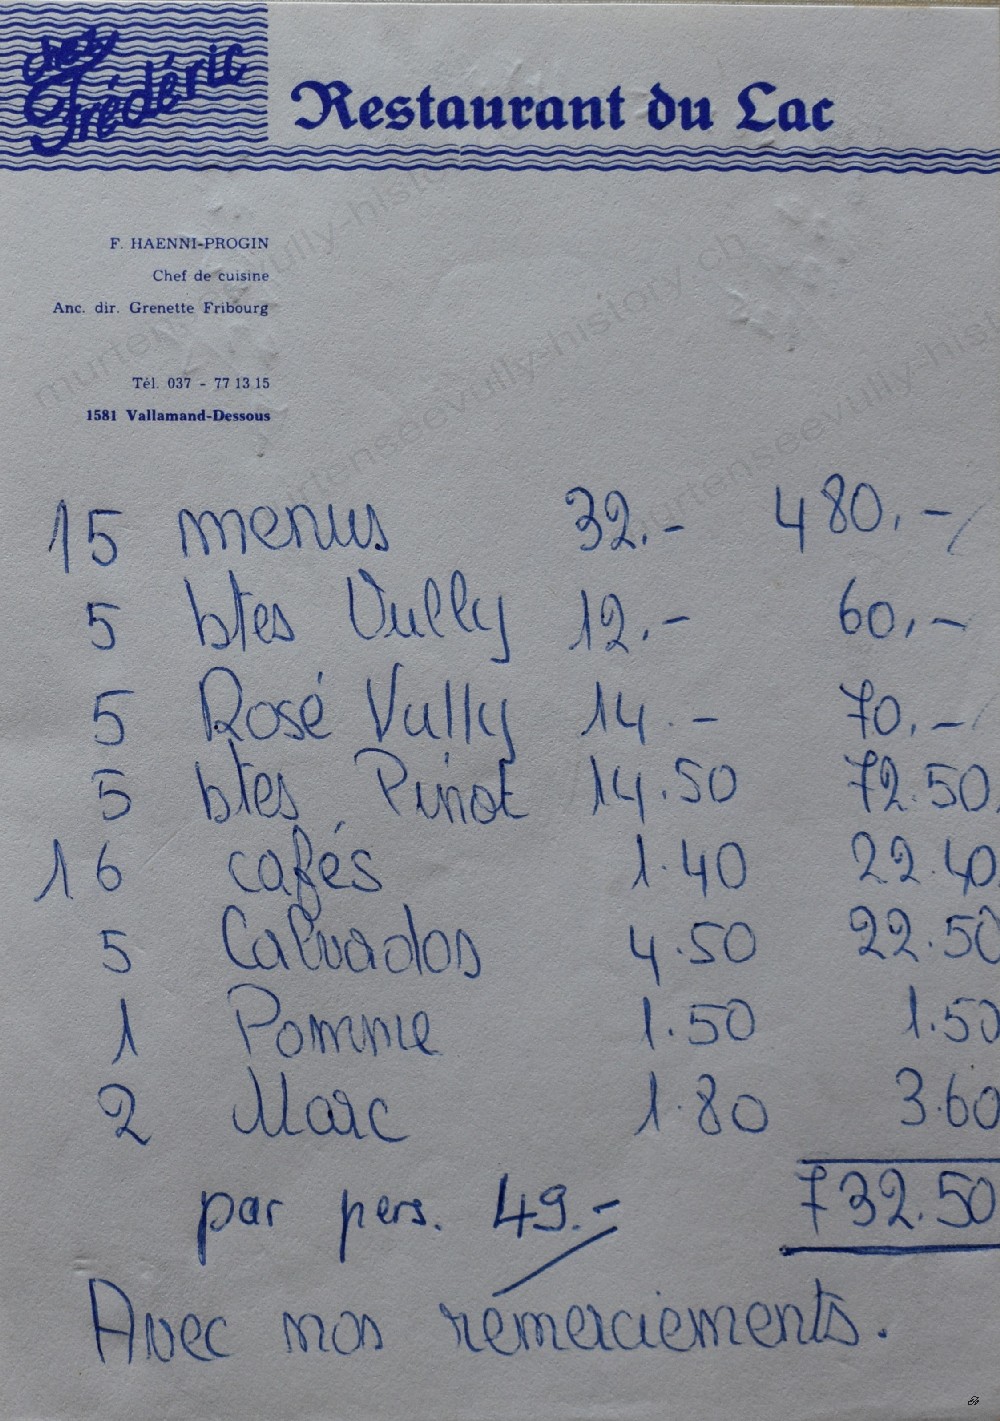 chez
Frédéric
Restaurant du Lac
F. HAENNI-PROGIN
Chef de cuisine
Anc. dir. Grenette Fribourg
Tél. 037 - 77 13 15
1581 Vallamand-Dessous
murtenseevully-history.ch
15 menus 32.- 480.-
5 btes Vully 12.- 60.-
5 Rosé Vully 14.- 70.-
5 btes Pinot 14.50 72.50
16 cafés 1.40 22.40
5 Calvados 4.50 22.50
1 Pomme 1.50 1.50
2 Marc 1.80 3.60
732.50
par pers. 49.-
Avec nos remerciements.